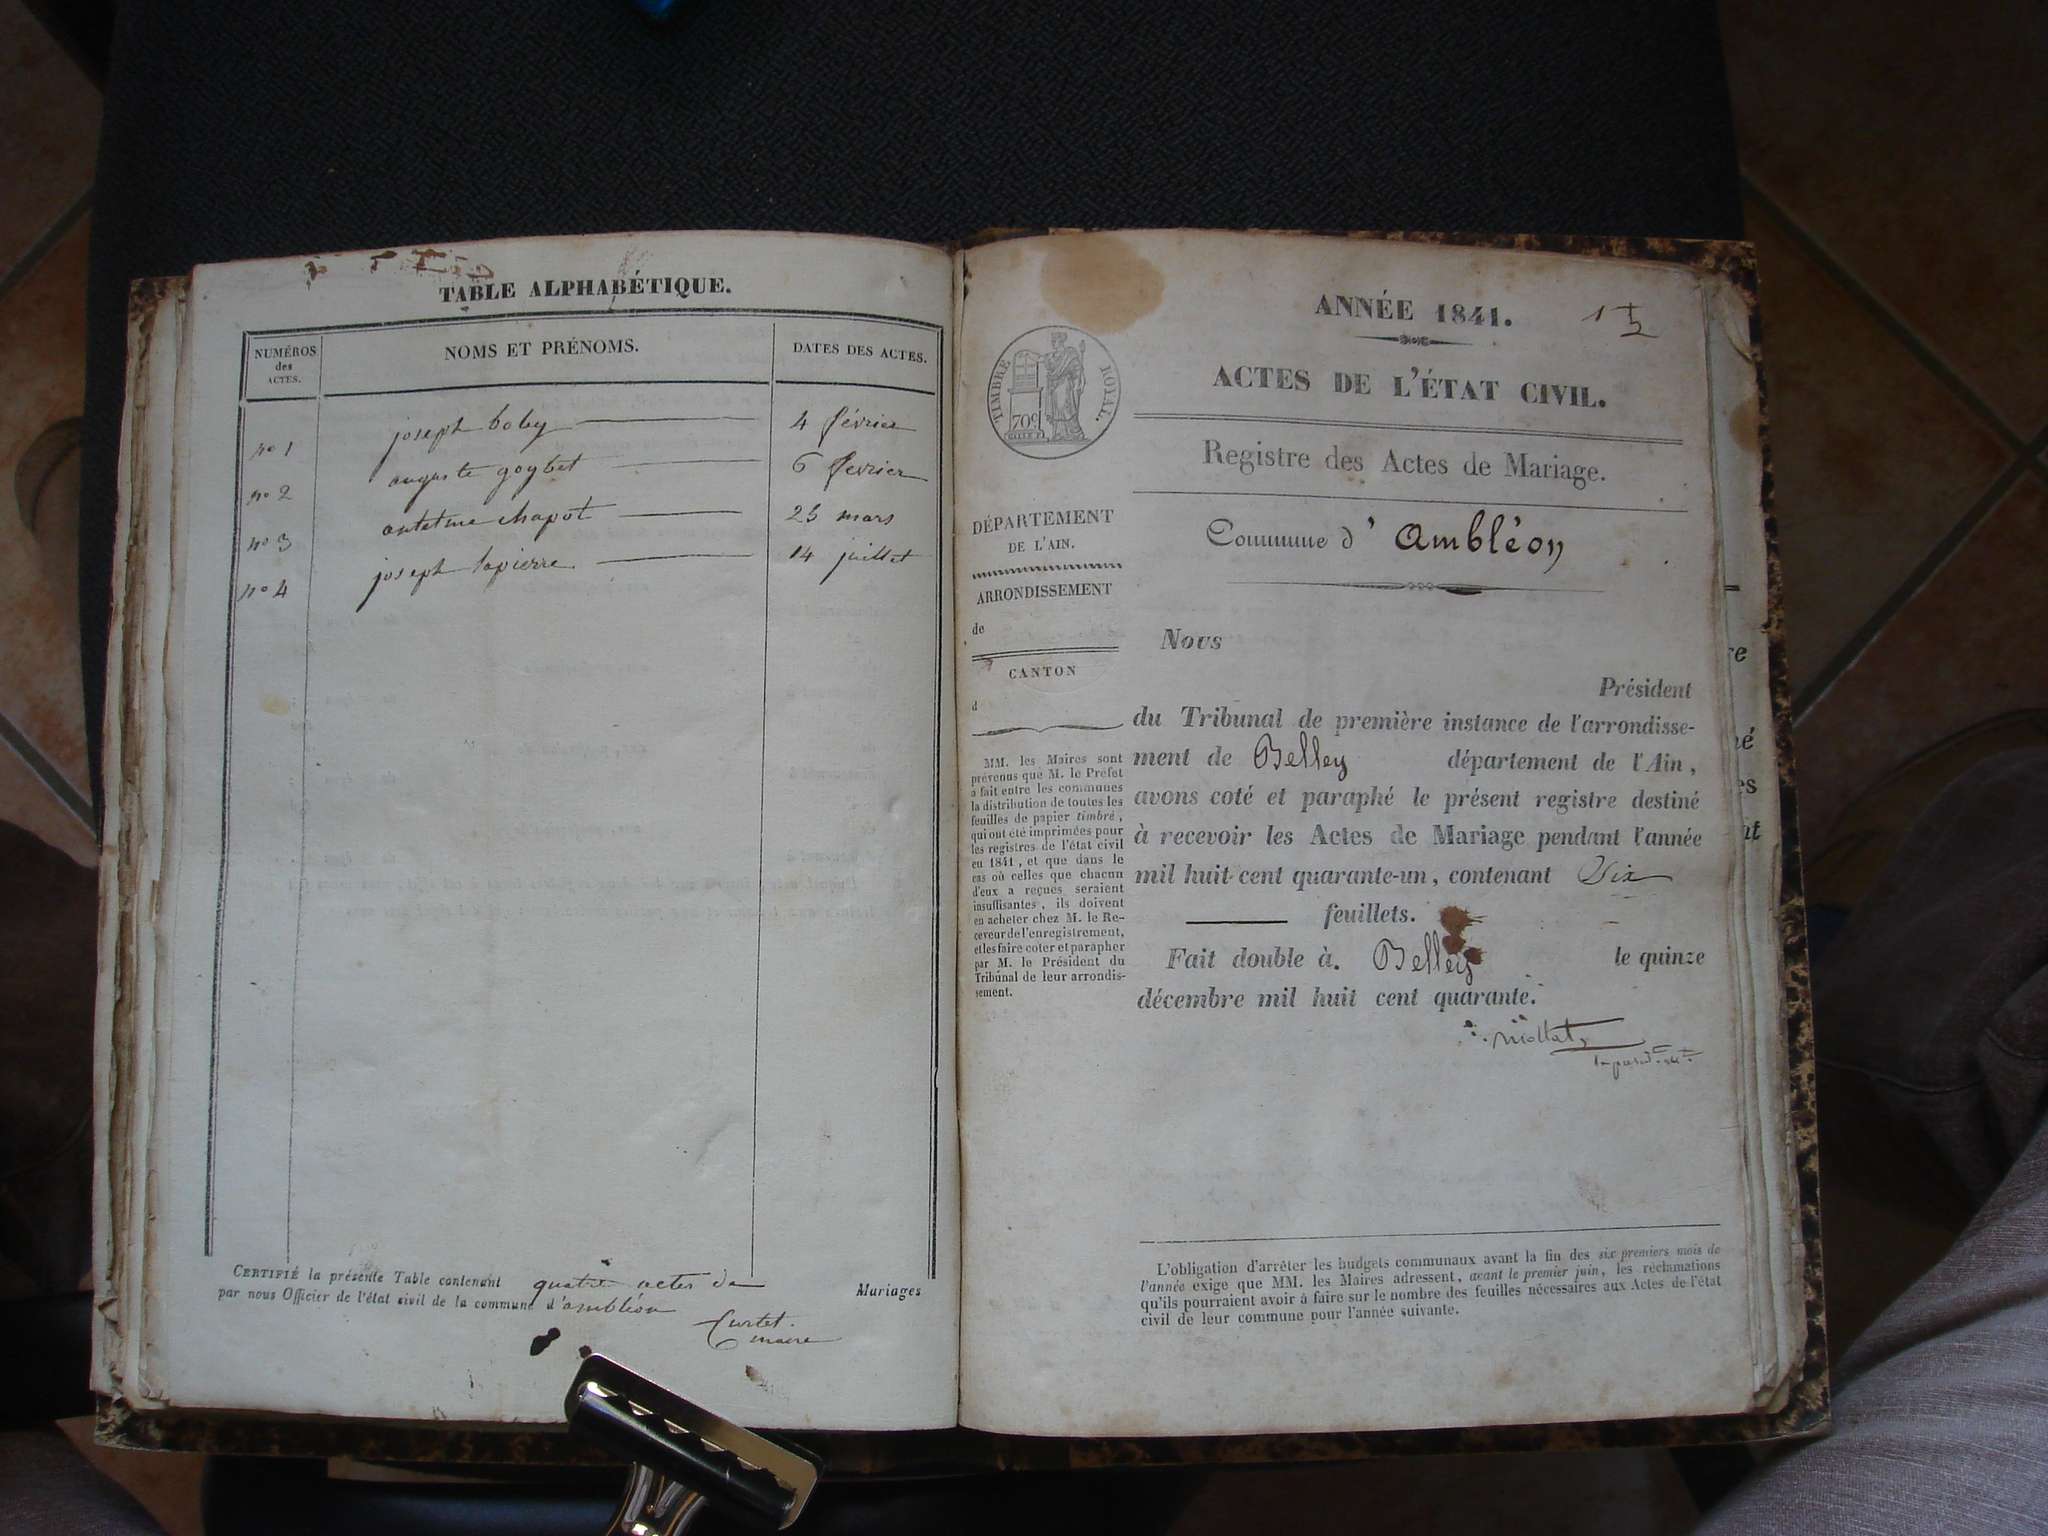 TABLE ALPHABÉTIQUE.
NUMÉROS
des
ACTES.
NOMS ET PRÉNOMS.
DATES DES ACTES.
nº 1 joseph bobey 4 février
nº 2 auguste goybet 6 fevrier
nº 3 antelme chapot 25 mars
nº 4 joseph lapierre 14 juillet
CERTIFIÉ la présente Table contenant quatre actes de Mariages
par nous Officier de l'état civil de la commune d'ambléon
Curtet.
maire
ANNÉE 1841.
ACTES DE L'ÉTAT CIVIL.
TIMBRE ROYAL.
70c
Registre des Actes de Mariage.
DÉPARTEMENT
DE L'AIN.
ARRONDISSEMENT
de
CANTON
d
MM. les Maires sont
prévenus que M. le Préfet
a fait entre les communes
la distribution de toutes les
feuilles de papier timbré,
qui ont été imprimées pour
les registres de l'état civil
en 1841, et que dans le
cas où celles que chacun
d'eux a reçues seraient
insuffisantes, ils doivent
en acheter chez M. le Re-
ceveur de l'enregistrement,
et les faire coter et parapher
par M. le Président du
Tribunal de leur arrondis-
sement.
Commune d'Ambléon
Nous
Président
du Tribunal de première instance de l'arrondisse-
ment de Belley département de l'Ain,
avons coté et paraphé le présent registre destiné
à recevoir les Actes de Mariage pendant l'année
mil huit cent quarante-un, contenant Six
feuillets.
Fait double à Belley le quinze
décembre mil huit cent quarante.
L'obligation d'arrêter les budgets communaux avant la fin des six premiers mois de
l'année exige que MM. les Maires adressent, avant le premier juin, les réclamations
qu'ils pourraient avoir à faire sur le nombre des feuilles nécessaires aux Actes de l'état
civil de leur commune pour l'année suivante.